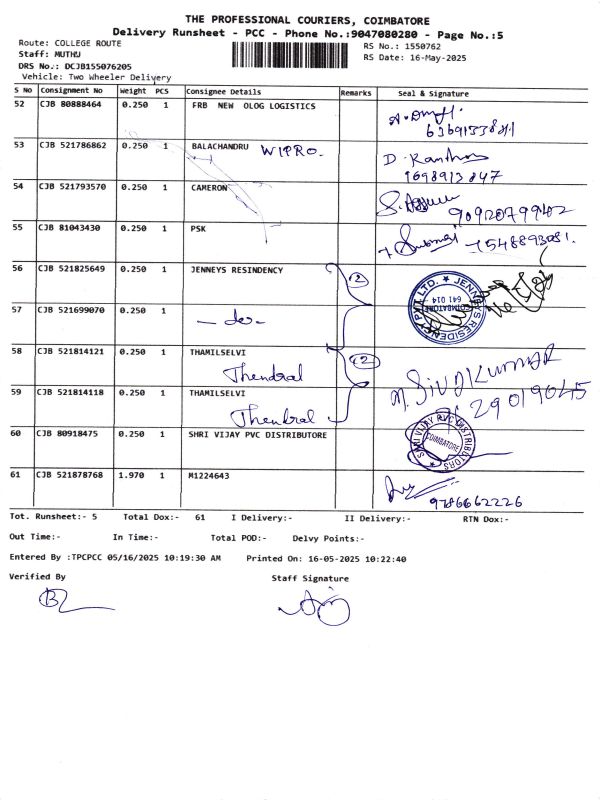 THE PROFESSIONAL COURIERS, COIMBATORE
Delivery Runsheet - PCC - Phone No.:9047080280 - Page No.:5
Route: COLLEGE ROUTE
RS No.: 1550762
Staff: MUTHU
RS Date: 16-May-2025
DRS No.: DCJB155076205
Vehicle: Two Wheeler Delivery
S No Consignment No Weight PCS Consignee Details Remarks Seal & Signature
52 CJB 80888464 0.250 1 FRB NEW OLOG LOGISTICS
53 CJB 521786862 0.250 1 BALACHANDRU WIPRO.
54 CJB 521793570 0.250 1 CAMERON
9092079942
55 CJB 81043430 0.250 1 PSK
56 CJB 521825649 0.250 1 JENNEYS RESINDENCY 2
JENNEYS RESIDENCY PVT LTD. COIMBATORE 641 014
57 CJB 521699070 0.250 1 - do -
58 CJB 521814121 0.250 1 THAMILSELVI 2
Thendral
M. SIVAKUMAR
59 CJB 521814118 0.250 1 THAMILSELVI
Thendral
29019045
60 CJB 80918475 0.250 1 SHRI VIJAY PVC DISTRIBUTORE
SHRI VIJAY PVC DISTRIBUTORS COIMBATORE
61 CJB 521878768 1.970 1 M1224643
9786662226
Tot. Runsheet:- 5 Total Dox:- 61 I Delivery:- II Delivery:- RTN Dox:-
Out Time:- In Time:- Total POD:- Delvy Points:-
Entered By :TPCPCC 05/16/2025 10:19:30 AM Printed On: 16-05-2025 10:22:40
Verified By Staff Signature